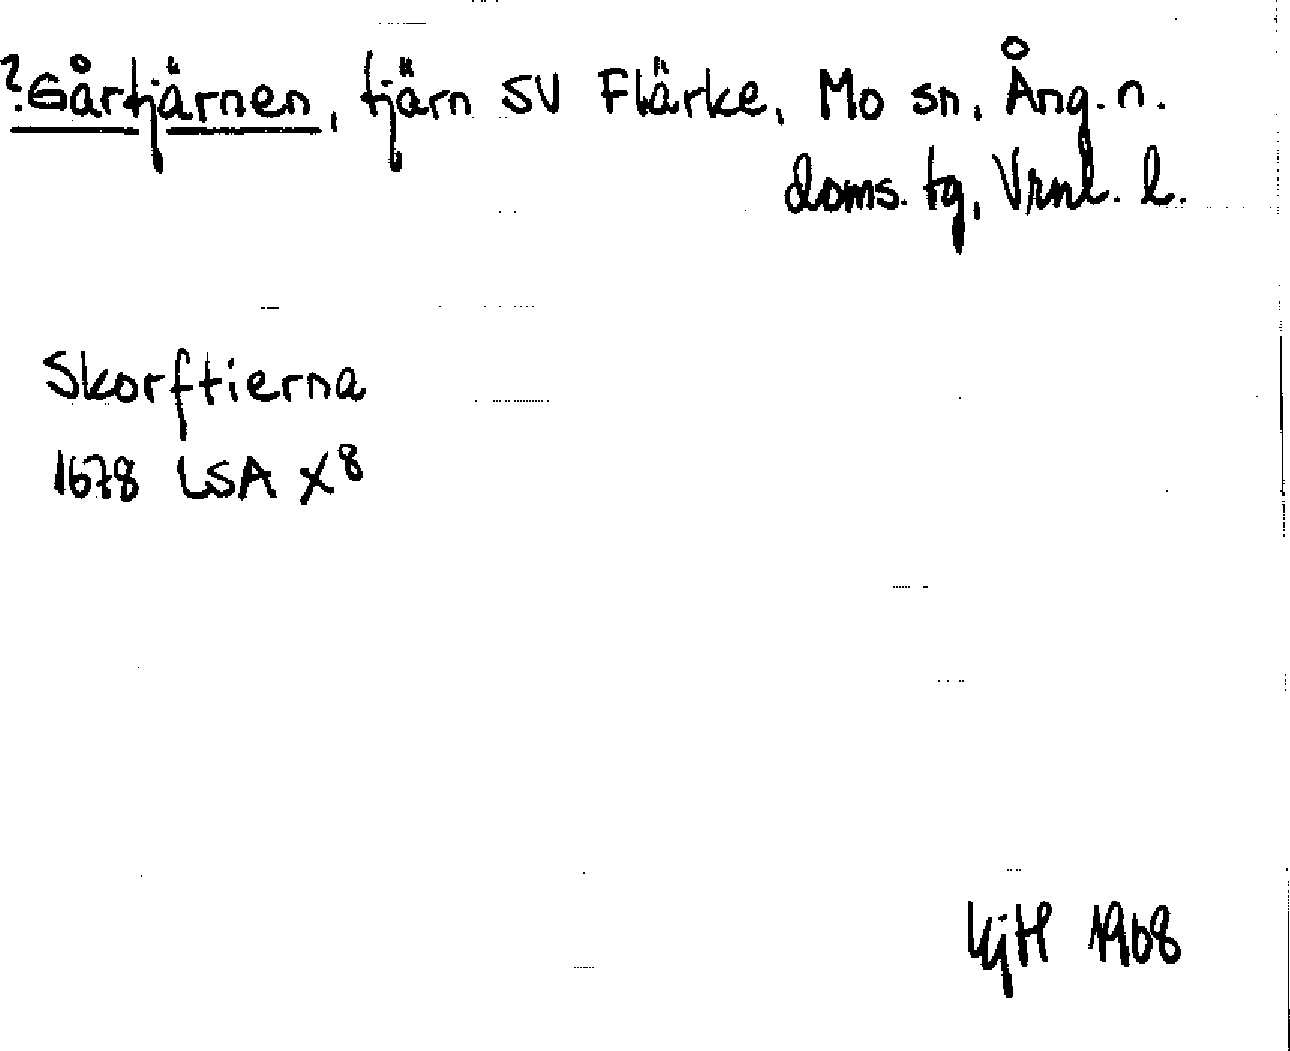 ?Gårtjärnen, tjärn SV Flärke, Mo sn, Ång. n.
doms. tg, Vrnl. l.
Skorftierna
1678 LSA X8
KjH 1968